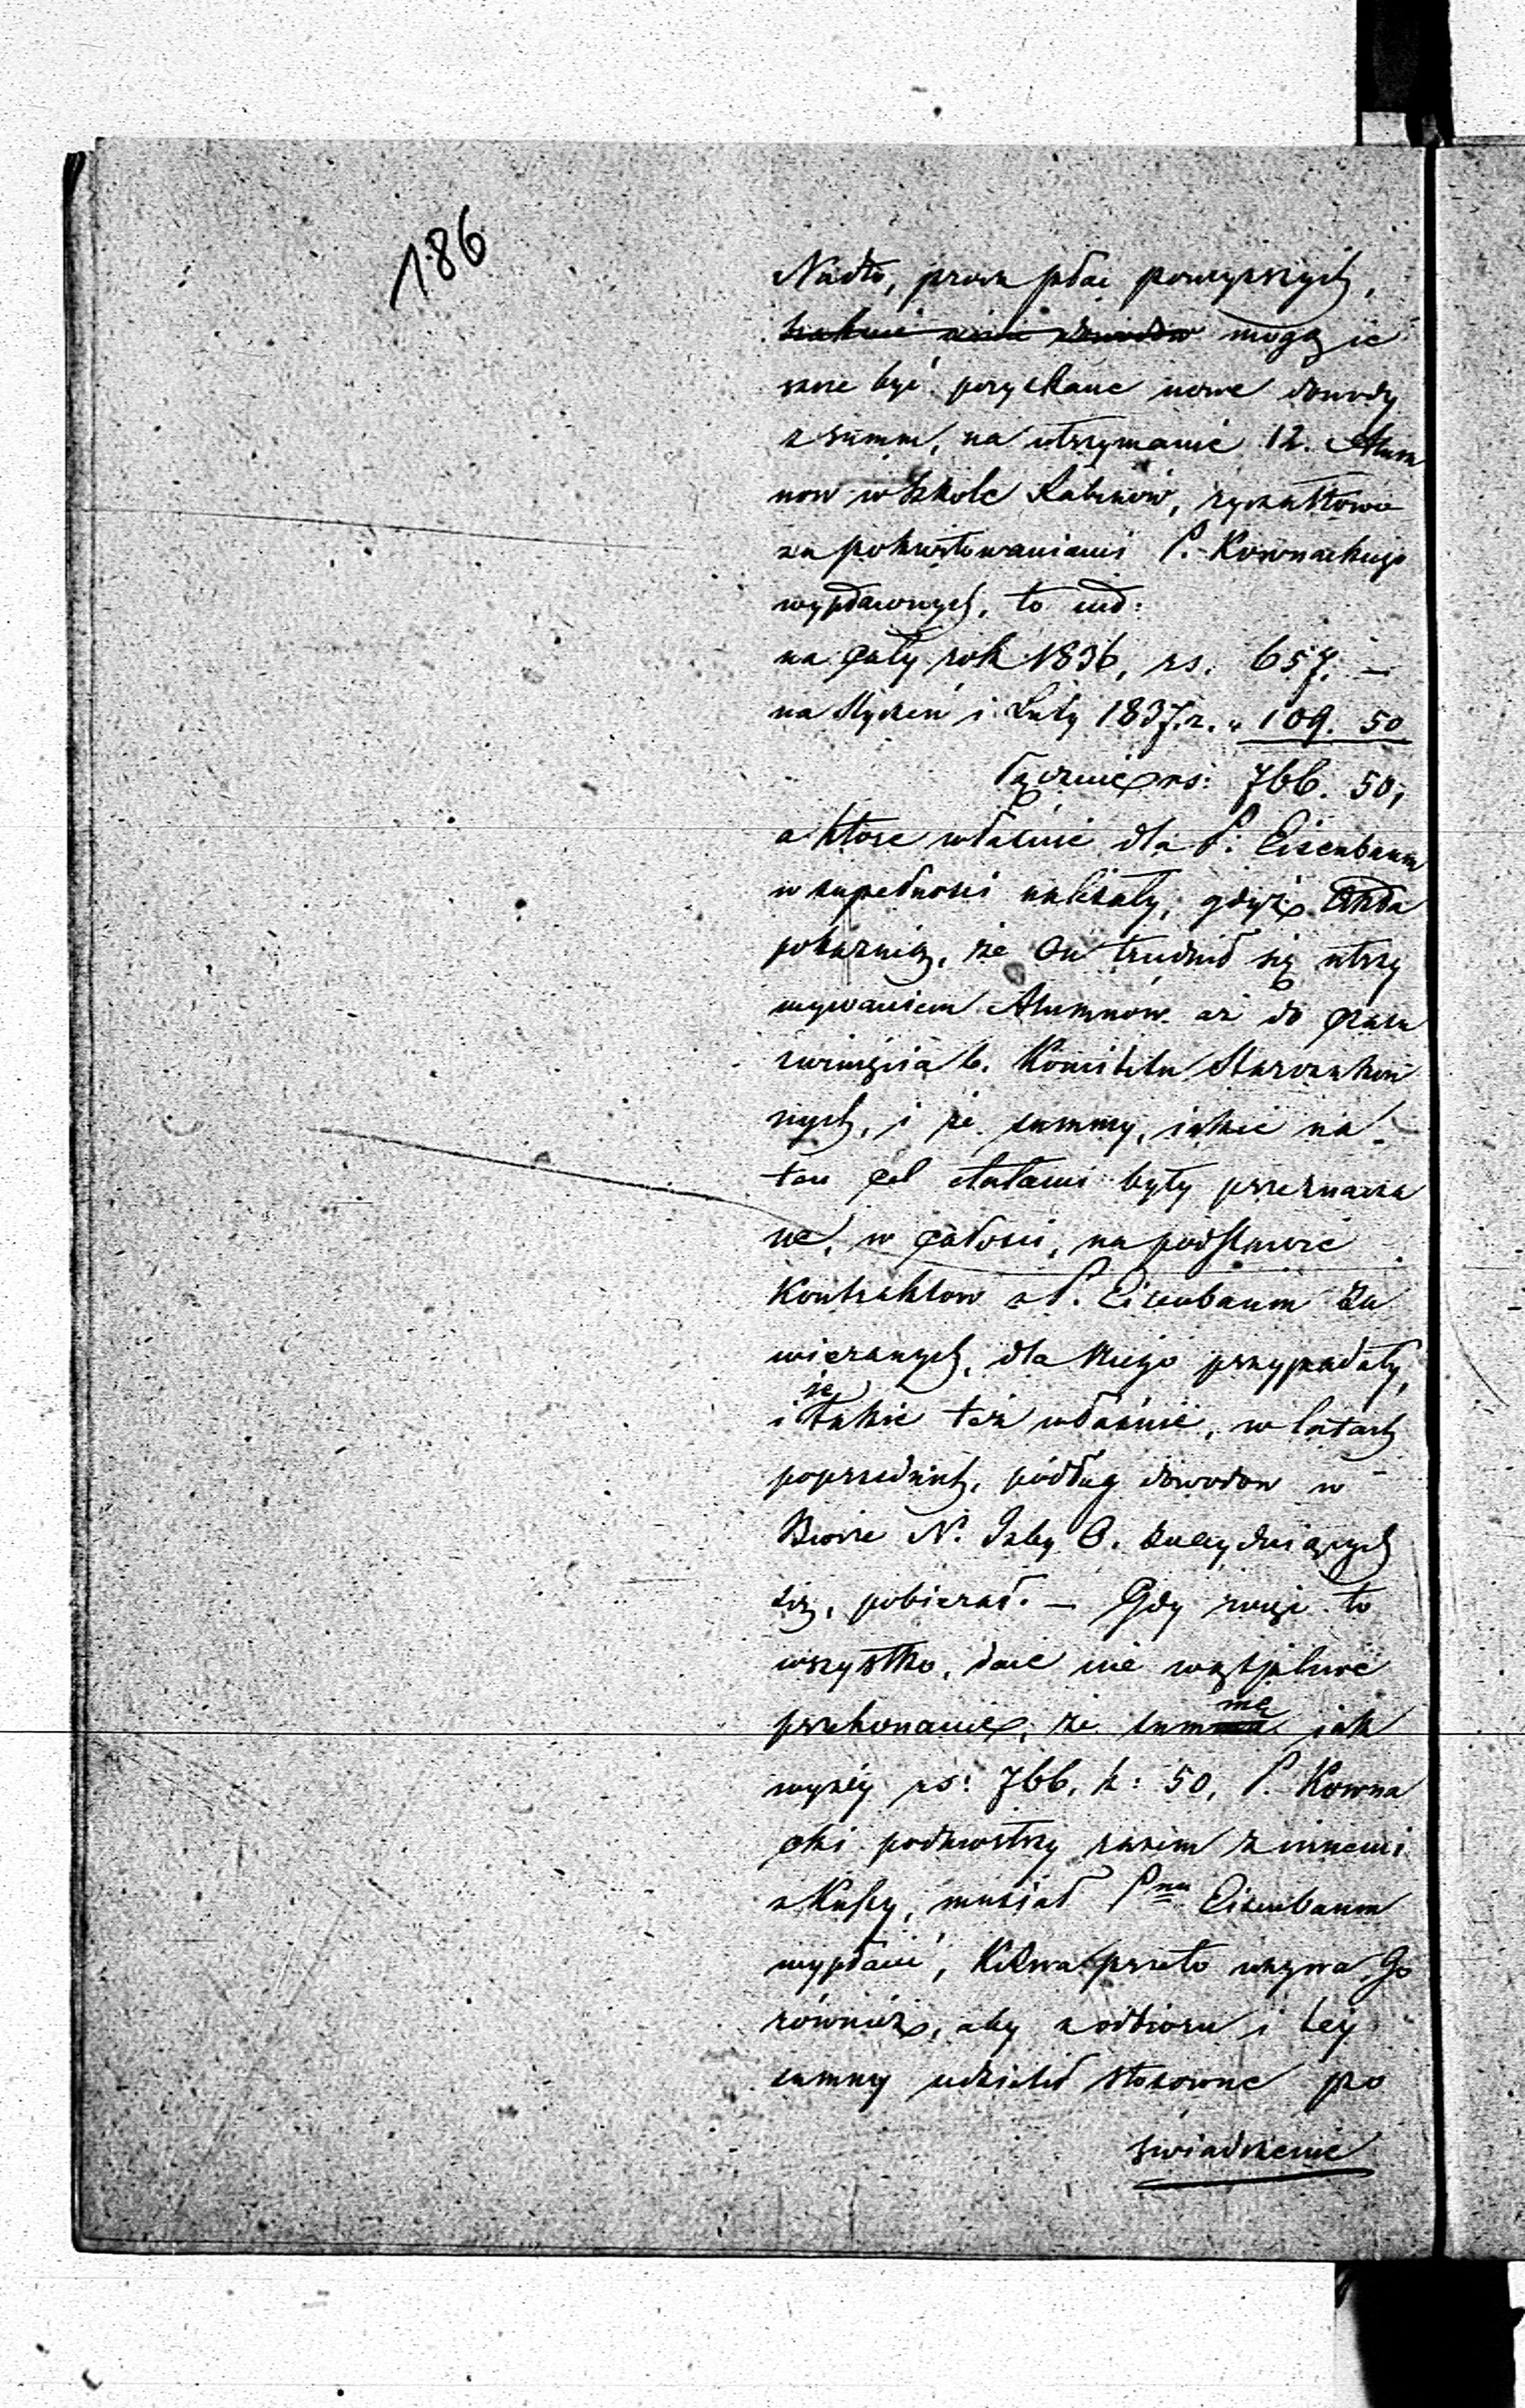 186
Nadto, prócz płac powyższych,
mogą je
szcze być pozyskane nowe dowody
z summ, na utrzymanie 12. Alum
now w Szkole Rabinów, ryczałtowo
za pokwitowaniami P. Kownackiego
wypłaconych, to iest:
na cały rok 1836, rs. 657. —
na Styczeń i Luty 1837 r. „ 109. 50
łącznie rs: 766. 50,
a które właśnie dla P. Eisenbaum
w zupełności należały, gdyż Akta
pokazują, że On trudnił się utrzy
mywaniem Alumnów aż do czasu
zwinięcia b. Komitetu Starozakon
nych, i że summy, iakie na
ten cel etatami były przeznaczo
ne, w całości, na podstawie
Kontraktow z P. Eisenbaum za
wieranych, dla Niego przypadały,
i że takie też właśnie, w latach
poprzednich, podług dowodow w
Biorze N. Izby O. znajduiących
się, pobierał. — Gdy więc to
wszystko, daie nie wątpliwe
przekonanie, że summę iak
wyżey rs: 766. k: 50, P. Kowna
cki podniosłszy razem z innemi
z Kassy, musiał Pnu Eisenbaum
wypłacić, przeto wzywa Go
również, aby z odbioru i tey
summy udzielił stosowne po
świadczenie